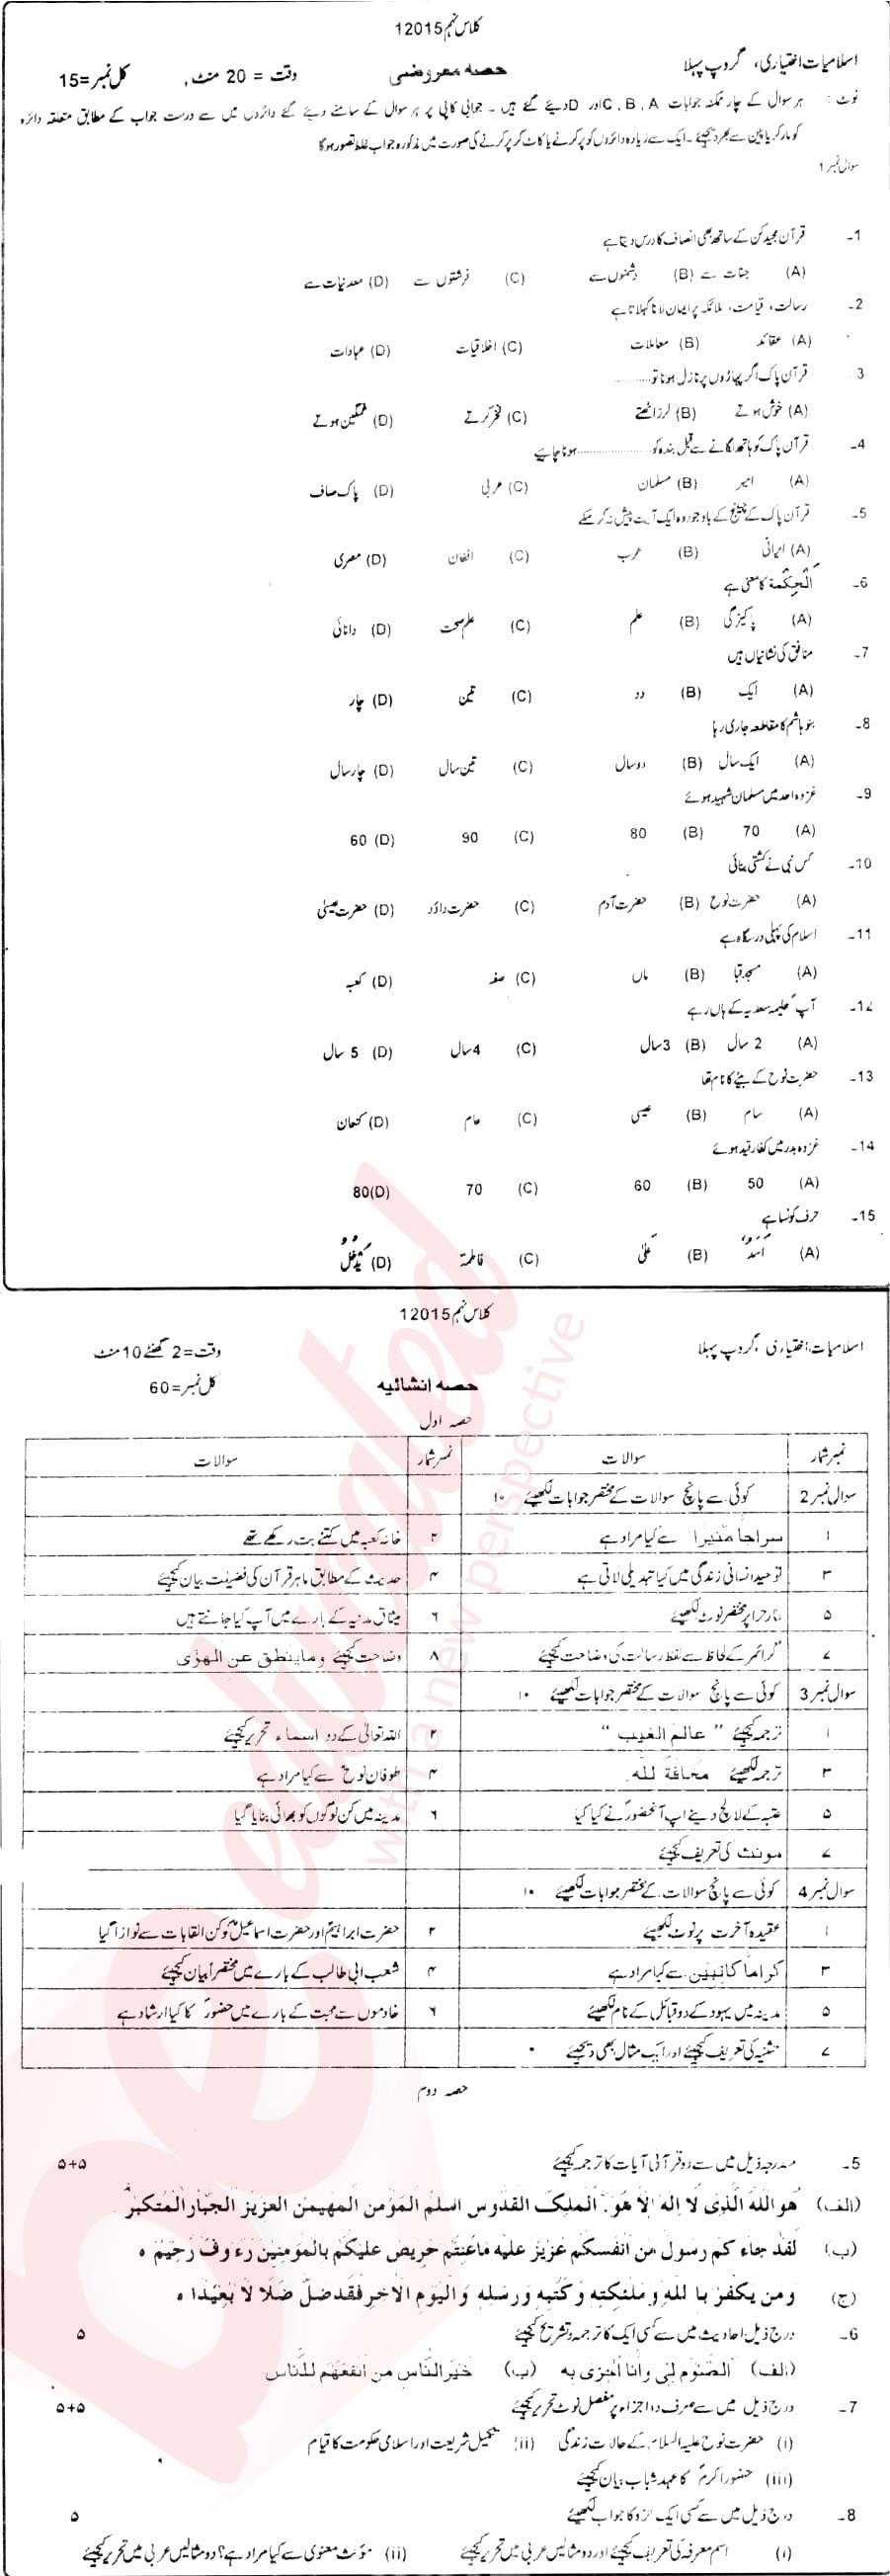 کلاس نہم 12015
اسلامیات اختیاری، گروپ پہلا حصہ معروضی وقت = 20 منٹ، کل نمبر=15
نوٹ: ہر سوال کے چار ممکنہ جوابات C, B, A اور D دیئے گئے ہیں۔ جوابی کاپی پر ہر سوال کے سامنے دیئے گئے دائروں میں سے درست جواب کے مطابق متعلقہ دائرہ
کو مارکر یا پین سے بھر دیجئے۔ ایک سے زیادہ دائروں کو پر کرنے یا کاٹ کر پر کرنے کی صورت میں مذکورہ جواب غلط تصور ہوگا
سوال نمبر 1
1- قرآن مجید کن کے ساتھ بھی انصاف کا درس دیتا ہے
(A) جنات سے (B) دشمنوں سے (C) فرشتوں سے (D) معدنیات سے
2- رسالت، قیامت، ملائکہ پر ایمان لانا کہلاتا ہے
(A) عقائد (B) معاملات (C) اخلاقیات (D) عبادات
3 قرآن پاک اگر پہاڑوں پر نازل ہوتا تو..........
(A) خوش ہوتے (B) لرز اٹھتے (C) فخر کرتے (D) غمگین ہوتے
4- قرآن پاک کو ہاتھ لگانے سے قبل بندہ کو .................... ہونا چاہیے
(A) امیر (B) مسلمان (C) عربی (D) پاک صاف
5- قرآن پاک کے چیلنج کے باوجود وہ ایک آیت پیش نہ کر سکے
(A) ایرانی (B) عرب (C) افغان (D) مصری
6- اَلْحِکْمَۃ کا معنی ہے
(A) پاکیزگی (B) علم (C) علم صحت (D) دانائی
7- منافق کی نشانیاں ہیں
(A) ایک (B) دو (C) تین (D) چار
8- بنو ہاشم کا مقاطعہ جاری رہا
(A) ایک سال (B) دو سال (C) تین سال (D) چار سال
9- غزوہ احد میں مسلمان شہید ہوئے
(A) 70 (B) 80 (C) 90 (D) 60
10- کس نبی نے کشتی بنائی
(A) حضرت نوح (B) حضرت آدم (C) حضرت داؤد (D) حضرت عیسیٰ
11- اسلام کی پہلی درسگاہ ہے
(A) مسجد قبا (B) ماں (C) صفہ (D) کعبہ
12- آپ حلیمہ سعدیہ کے ہاں رہے
(A) 2 سال (B) 3 سال (C) 4 سال (D) 5 سال
13- حضرت نوح کے بیٹے کا نام تھا
(A) سام (B) عیسی (C) عام (D) کنعان
14- غزوہ بدر میں کفار قید ہوئے
(A) 50 (B) 60 (C) 70 (D) 80
15- حرف کونسا ہے
(A) اَسَدٌ (B) عَلیٰ (C) فاطمۃ (D) یَدْخُلُ
کلاس نہم 12015
اسلامیات اختیاری، گروپ پہلا وقت=2 گھنٹے 10 منٹ
حصہ انشائیہ کل نمبر=60
حصہ اول
نمبر شمار سوالات نمبر شمار سوالات
سوال نمبر 2 کوئی سے پانچ سوالات کے مختصر جوابات لکھیئے ۱۰
۱ سراجا منیرا سے کیا مراد ہے ۲ خانہ کعبہ میں کتنے بت رکھے تھے
۳ توحید انسانی زندگی میں کیا تبدیلی لاتی ہے ۴ حدیث کے مطابق ماہر قرآن کی فضیلت بیان کیجئے
۵ غار حرا پر مختصر نوٹ لکھیئے ۶ میثاق مدینہ کے بارے میں آپ کیا جانتے ہیں
۷ گرائمر کے لحاظ سے لفظ رسالت کی وضاحت کیجئے ۸ وضاحت کیجئے وماینطق عن الھوٰی
سوال نمبر 3 کوئی سے پانچ سوالات کے مختصر جوابات لکھیئے ۱۰
۱ ترجمہ کیجئے "عالم الغیب" ۲ اللہ تعالیٰ کے دو اسماء تحریر کیجئے
۳ ترجمہ لکھیئے مخافۃ للہ ۴ طوفان نوح سے کیا مراد ہے
۵ عتبہ کے لالچ دینے اپ آنحضور نے کیا کیا ۶ مدینہ میں کن لوگوں کو بھائی بنایا گیا
۷ مونث کی تعریف کیجئے
سوال نمبر 4 کوئی سے پانچ سوالات کے مختصر جوابات لکھیئے ۱۰
۱ عقیدہ آخرت پر نوٹ لکھیئے ۲ حضرت ابراہیم اور حضرت اسماعیل کو کن القابات سے نوازا گیا
۳ کراما کاتبین سے کیا مراد ہے ۴ شعب ابی طالب کے بارے میں مختصراً بیان کیجئے
۵ مدینہ میں یہود کے دو قبائل کے نام لکھیئے ۶ خادموں سے محبت کے بارے میں حضور کا کیا ارشاد ہے
۷ تثنیہ کی تعریف کیجئے اور ایک مثال بھی دیجیئے
حصہ دوم
5- مندرجہ ذیل میں سے دو قرآنی آیات کا ترجمہ کیجئے ۵+۵
(الف) ھو اللہ الَّذِی لَا اِلٰہ اِلَّا ھُوَ۔ الملک القدوس السلم المؤمن المھیمن العزیز الجبار المتکبر
(ب) لقد جاء کم رسول من انفسکم عزیز علیہ ماعنتم حریص علیکم بالمومنین رءوف رحیم ہ
(ج) ومن یکفر با للہ وملئکتہ وکتبہ ورسلہ والیوم الاخر فقد ضل ضلا لا بعیدا ہ
6- درج ذیل احادیث میں سے کسی ایک کا ترجمہ و تشریح کیجئے ۵
(الف) الصوم لی وانا اجزی بہ (ب) خیر الناس من انفعھم للناس
7- درج ذیل میں سے صرف دو اجزاء پر مفصل نوٹ تحریر کیجئے ۵+۵
(i) حضرت نوح علیہ السلام کے حالات زندگی (ii) تکمیل شریعت اور اسلامی حکومت کا قیام
(iii) حضور اکرم کا عہد شباب بیان کیجئے
8- درج ذیل میں سے کسی ایک جزو کا جواب لکھیئے ۵
(i) اسم معرفہ کی تعریف کیجئے اور دو مثالیں عربی میں تحریر کیجئے (ii) مؤنث معنوی سے کیا مراد ہے؟ دو مثالیں عربی میں تحریر کیجئے
beeducated
with a new perspective